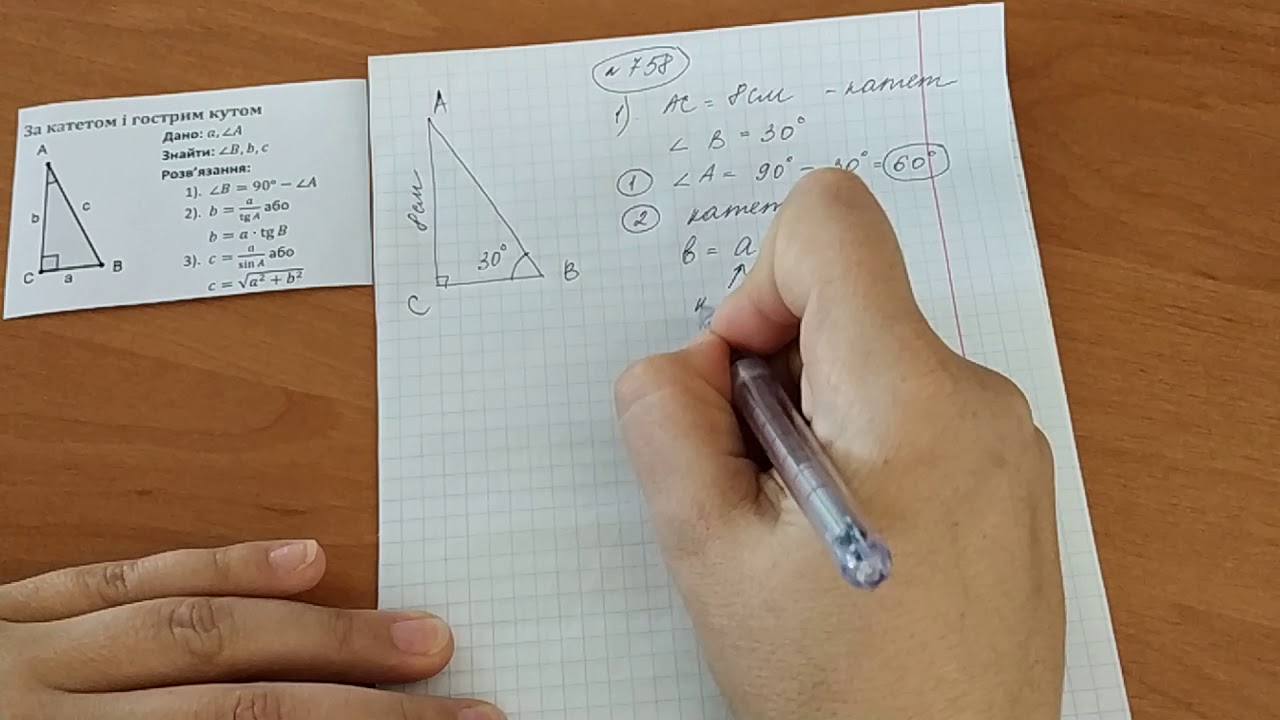 За катетом і гострим кутом
Дано: a, ∠A
Знайти: ∠B, b, c
Розв'язання:
1). ∠B = 90° − ∠A
2). b = a/tg A або
b = a · tg B
3). c = a/sin A або
c = √a² + b²
A
b
c
C
a
B
A
8см
30°
C
B
№ 758
1). AC = 8см - катет
∠ B = 30°
1 ∠ A = 90° − 30° = 60°
2 катет
b = a